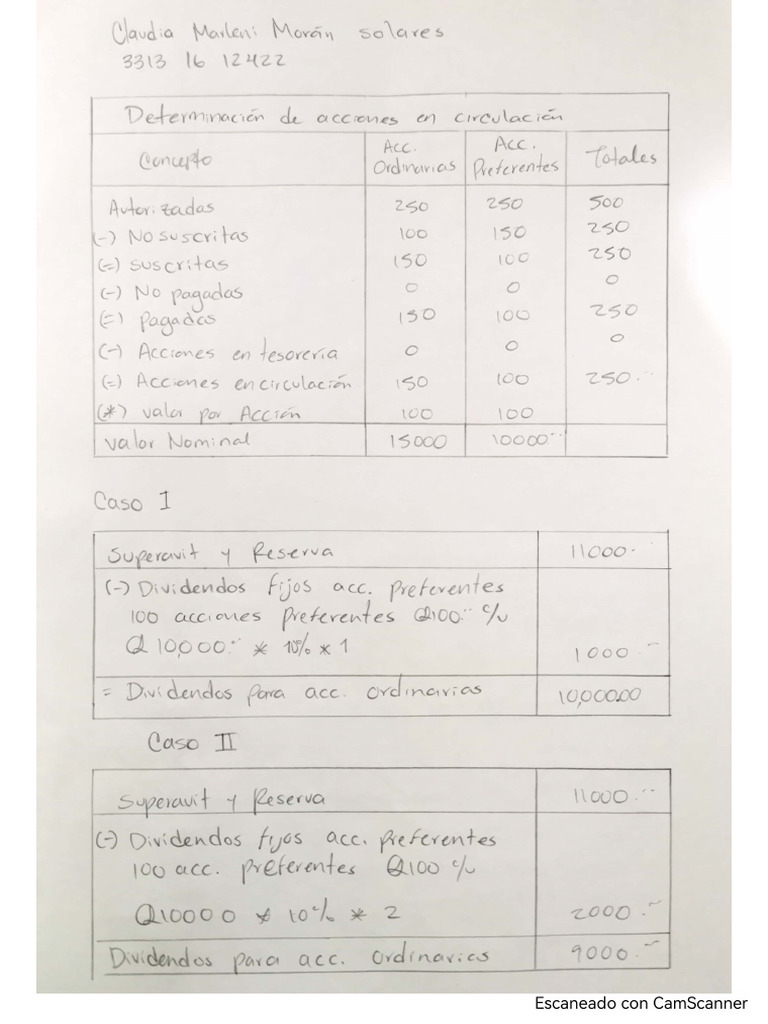 Claudia Marleni Morán solares
3313 16 12422
Determinación de acciones en circulación
Concepto Acc. Ordinarias Acc. Preferentes Totales
Autorizadas 250 250 500
(-) No suscritas 100 150 250
(=) suscritas 150 100 250
(-) No pagadas 0 0 0
(=) Pagadas 150 100 250
(-) Acciones en tesorería 0 0 0
(=) Acciones en circulación 150 100 250.--
(*) valor por Acción 100 100
valor Nominal 15000 10000--
Caso I
Superavit y Reserva 11000.-
(-) Dividendos fijos acc. preferentes
100 acciones preferentes Q100.-- c/u
Q 10,000.-- * 10% * 1 1000.--
= Dividendos para acc. ordinarias 10,000.00
Caso II
Superavit y Reserva 11000.--
(-) Dividendos fijos acc. preferentes
100 acc. preferentes Q100 c/u
Q10000 * 10% * 2 2000.--
Dividendos para acc. ordinarias 9000.--
Escaneado con CamScanner